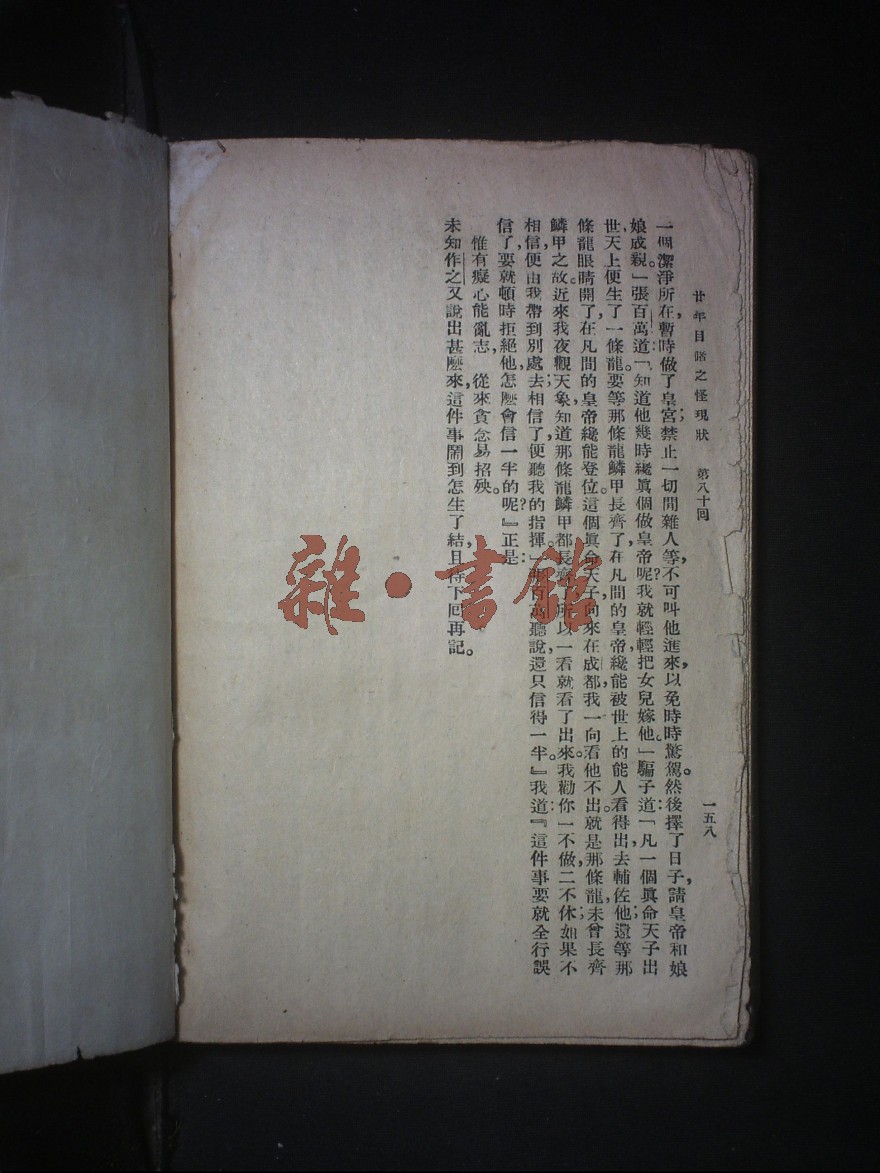 廿年目睹之怪現狀 第八十回 一五八
一個潔淨所在，暫時做了皇宮；禁止一切閒雜人等，不可叫他進來，以免時時驚駕。然後擇了日子，請皇帝和娘
娘成親。」張百萬道：「知道他幾時纔眞個做皇帝呢？我就輕輕把女兒嫁他。」騙子道：「凡一個眞命天子出
世，天上便生了一條龍。要等那條龍鱗甲長齊了，在凡間的皇帝，纔能被世上的能人看得出，去輔佐他；還等那
條龍眼睛開了，在凡間的皇帝纔能登位。這個眞命天子，向來在成都，我一向看他不出。就是那條龍，未曾長齊
鱗甲之故。近來我夜觀天象，知道那條龍鱗甲都長齊了，所以一看就看了出來。我勸你一不做，二不休；如果不
相信，便由我帶到別處去；相信了，便聽我的指揮。」張百萬聽說，還只信得一半。』我道：『這件事要就全行誤
信了，要就頓時拒絕他，怎麽會信一半的呢？』正是：
惟有癡心能亂志， 從來貪念易招殃。
未知作之又說出甚麽來，這件事鬧到怎生了結，且待下回再記。
雜·書館